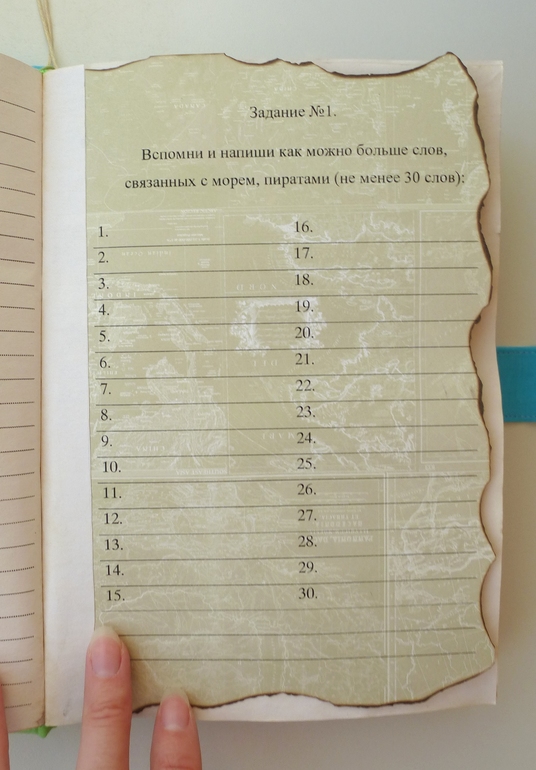 Задание №1.
Вспомни и напиши как можно больше слов,
связанных с морем, пиратами (не менее 30 слов):
1. 16.
2. 17.
3. 18.
4. 19.
5. 20.
6. 21.
7. 22.
8. 23.
9. 24.
10. 25.
11. 26.
12. 27.
13. 28.
14. 29.
15. 30.